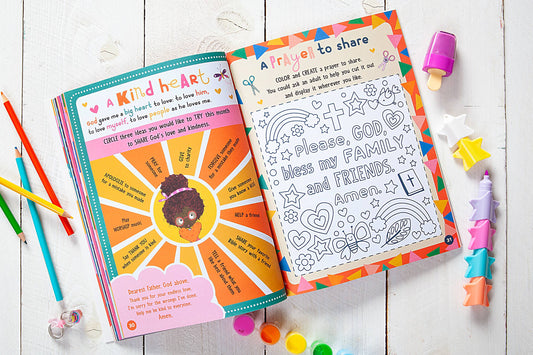 A KIND HEART
God gave me a big heart to love: to love him,
to love myself, to love people as he loves me.
CIRCLE three ideas you would like to TRY this month
to SHARE God's love and kindness.
PRAY for
someone
GIVE
to charity
FORGIVE someone
for a mistake they made
APOLOGIZE to someone
for a mistake you made
Give someone
you know a HUG
Play
WORSHIP music
HELP a friend
SHARE your favorite
Bible story with a friend
SAY THANK YOU
when someone is kind
TELL a friend what you
like most about them
Dearest Father God above,
Thank you for your endless love.
I'm sorry for the wrongs I've done,
Help me be kind to everyone.
Amen.
30
A PRAYER TO SHARE
COLOR and CREATE a prayer to share.
You could ask an adult to help you cut it out
and display it wherever you like.
please, GOD,
bless my FAMILY
and FRIENDS.
Amen.
31